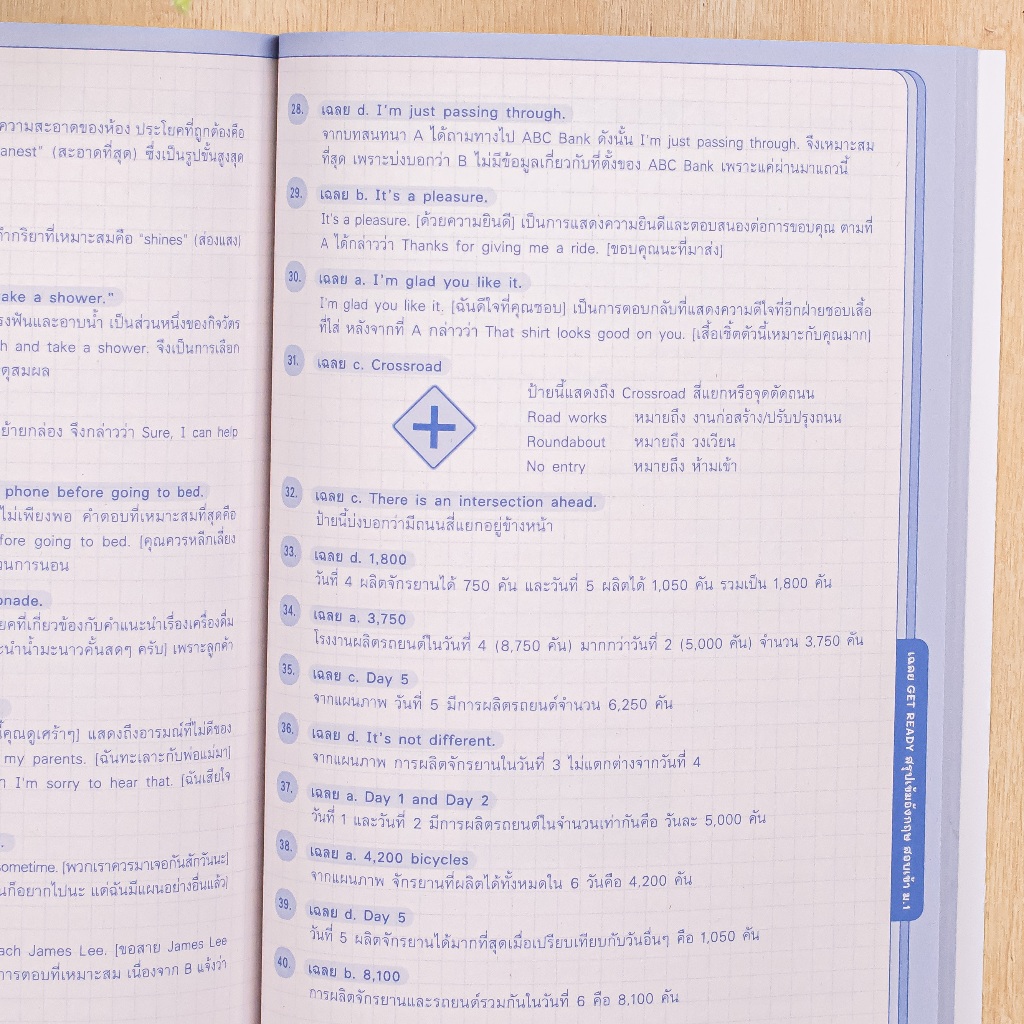 ความสะอาดของห้อง ประโยคที่ถูกต้องคือ
anest" (สะอาดที่สุด) ซึ่งเป็นรูปขั้นสูงสุด
คำกริยาที่เหมาะสมคือ "shines" (ส่องแสง)
ake a shower."
รงฟันและอาบน้ำ เป็นส่วนหนึ่งของกิจวัตร
h and take a shower. จึงเป็นการเลือก
ตุสมผล
ย้ายกล่อง จึงกล่าวว่า Sure, I can help
phone before going to bed.
ไม่เพียงพอ คำตอบที่เหมาะสมที่สุดคือ
fore going to bed. [คุณควรหลีกเลี่ยง
วนการนอน
onade.
ยคที่เกี่ยวข้องกับคำแนะนำเรื่องเครื่องดื่ม
ะนำน้ำมะนาวคั้นสดๆ ครับ] เพราะลูกค้า
้คุณดูเศร้าๆ] แสดงถึงอารมณ์ที่ไม่ดีของ
my parents. [ฉันทะเลาะกับพ่อแม่มา]
า I'm sorry to hear that. [ฉันเสียใจ
sometime. [พวกเราควรมาเจอกันสักวันนะ]
ันก็อยากไปนะ แต่ฉันมีแผนอย่างอื่นแล้ว]
ach James Lee. [ขอสาย James Lee
การตอบที่เหมาะสม เนื่องจาก B แจ้งว่า
28. เฉลย d. I'm just passing through.
จากบทสนทนา A ได้ถามทางไป ABC Bank ดังนั้น I'm just passing through. จึงเหมาะสม
ที่สุด เพราะบ่งบอกว่า B ไม่มีข้อมูลเกี่ยวกับที่ตั้งของ ABC Bank เพราะแค่ผ่านมาแถวนี้
29. เฉลย b. It's a pleasure.
It's a pleasure. [ด้วยความยินดี] เป็นการแสดงความยินดีและตอบสนองต่อการขอบคุณ ตามที่
A ได้กล่าวว่า Thanks for giving me a ride. [ขอบคุณนะที่มาส่ง]
30. เฉลย a. I'm glad you like it.
I'm glad you like it. [ฉันดีใจที่คุณชอบ] เป็นการตอบกลับที่แสดงความดีใจที่อีกฝ่ายชอบเสื้อ
ที่ใส่ หลังจากที่ A กล่าวว่า That shirt looks good on you. [เสื้อเชิ้ตตัวนี้เหมาะกับคุณมาก]
31. เฉลย c. Crossroad
ป้ายนี้แสดงถึง Crossroad สี่แยกหรือจุดตัดถนน
Road works หมายถึง งานก่อสร้าง/ปรับปรุงถนน
Roundabout หมายถึง วงเวียน
No entry หมายถึง ห้ามเข้า
32. เฉลย c. There is an intersection ahead.
ป้ายนี้บ่งบอกว่ามีถนนสี่แยกอยู่ข้างหน้า
33. เฉลย d. 1,800
วันที่ 4 ผลิตจักรยานได้ 750 คัน และวันที่ 5 ผลิตได้ 1,050 คัน รวมเป็น 1,800 คัน
34. เฉลย a. 3,750
โรงงานผลิตรถยนต์ในวันที่ 4 (8,750 คัน) มากกว่าวันที่ 2 (5,000 คัน) จำนวน 3,750 คัน
35. เฉลย c. Day 5
จากแผนภาพ วันที่ 5 มีการผลิตรถยนต์จำนวน 6,250 คัน
36. เฉลย d. It's not different.
จากแผนภาพ การผลิตจักรยานในวันที่ 3 ไม่แตกต่างจากวันที่ 4
37. เฉลย a. Day 1 and Day 2
วันที่ 1 และวันที่ 2 มีการผลิตรถยนต์ในจำนวนเท่ากันคือ วันละ 5,000 คัน
38. เฉลย a. 4,200 bicycles
จากแผนภาพ จักรยานที่ผลิตได้ทั้งหมดใน 6 วันคือ 4,200 คัน
39. เฉลย d. Day 5
วันที่ 5 ผลิตจักรยานได้มากที่สุดเมื่อเปรียบเทียบกับวันอื่นๆ คือ 1,050 คัน
40. เฉลย b. 8,100
การผลิตจักรยานและรถยนต์รวมกันในวันที่ 6 คือ 8,100 คัน
เฉลย GET READY สรุปเข้มอังกฤษ สอบเข้า ม.1